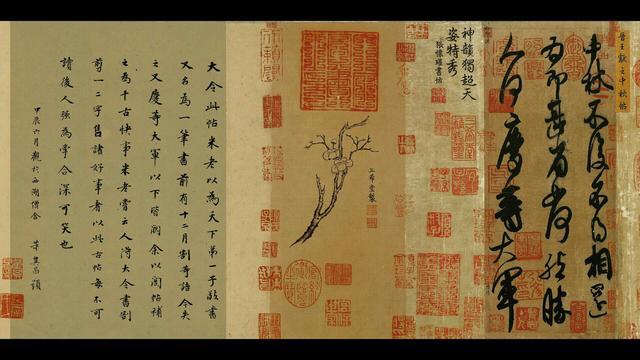 晉王獻之中秋帖
中秋不復不得相還
為即甚省如何然勝
人何慶等大軍
神韻獨超天
姿特秀
張懷瓘書估
三希堂製
大令此帖米老以為天下第一子敬書
又名為一筆書前有十二月割等語今失
之又慶等大軍以下皆闕余以閣帖補
之為千古快事米老嘗云人得大令書割
剪一二字售諸好事者以此古帖每不可
讀後人強為牽合深可笑也
甲辰六月觀於西湖僧舍 董其昌題